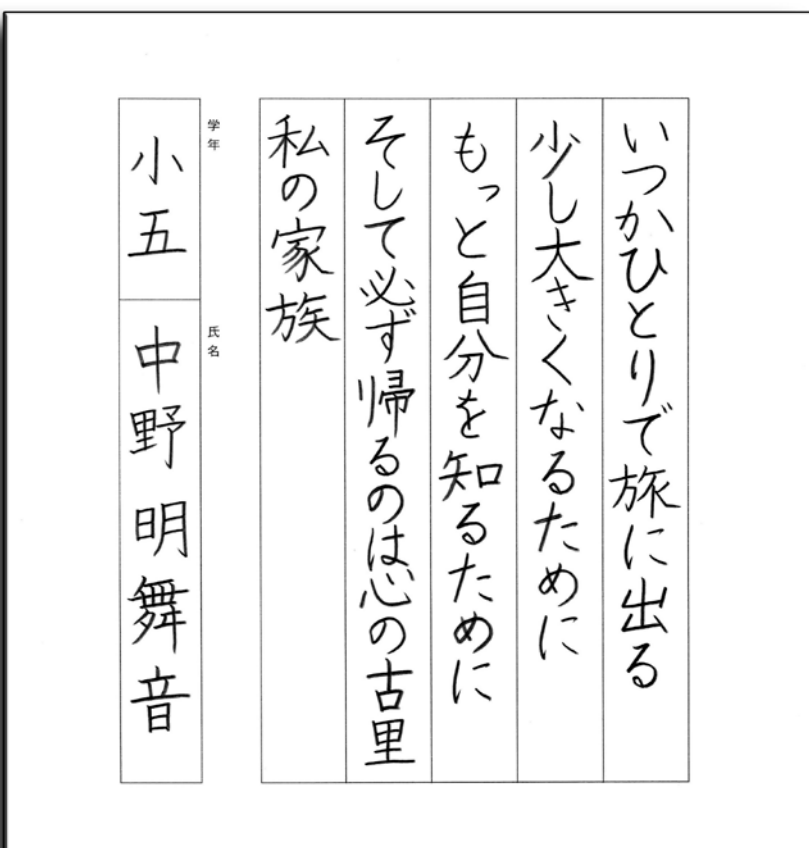 いつかひとりで旅に出る
少し大きくなるために
もっと自分を知るために
そして必ず帰るのは心の古里
私の家族
学年
小五
氏名
中野明舞音